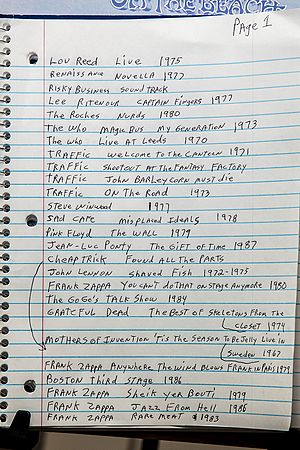 ON THE BEACH
Page 1
Lou Reed Live 1975
Renaissance Novella 1977
Risky Business Soundtrack
Lee Ritenour Captain Fingers 1977
The Roches Nurds 1980
The Who Magic Bus My Generation 1973
The Who Live At Leeds 1970
Traffic Welcome to the Canteen 1971
Traffic Shootout At the Fantasy Factory
Traffic John Barleycorn Must Die
Traffic On The Road 1973
Steve Winwood 1977
Sad Cafe Misplaced Ideals 1978
Pink Floyd The Wall 1979
Jean-Luc Ponty The Gift of Time 1987
Cheap Trick Found All The Parts
John Lennon Shaved Fish 1972-1975
Frank Zappa You Can't do That on Stage Anymore 1950
The GoGo's Talk Show 1984
Grateful Dead The Best of Skeletons From the
Closet 1974
Mothers of Invention 'Tis the Season To Be Jelly Live in
Sweden 1967
Frank Zappa Anywhere The Wind Blows Frank in Paris 1979
Boston Third Stage 1986
Frank Zappa Sheik yer Bouti 1979
Frank Zappa Jazz From Hell 1986
Frank Zappa Rare Meat 1983